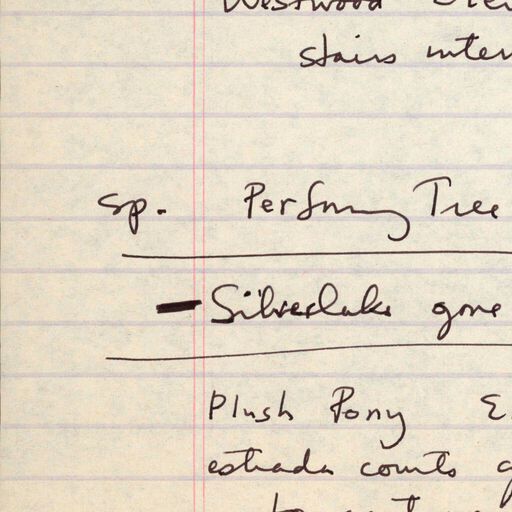 Westwood
stairs inter
sp. Performing Tree
- Silverlake gone
Plush Pony E.
estrada courts